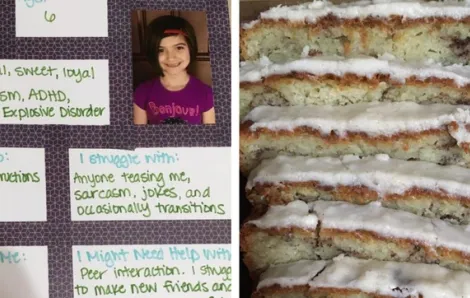 6
sweet, loyal
ADHD,
Explosive Disorder
Bonjour!
I struggle with:
Anyone teasing me,
sarcasm, jokes, and
occasionally transitions
Me:
I Might Need Help With
Peer interaction. I
to make new friends and